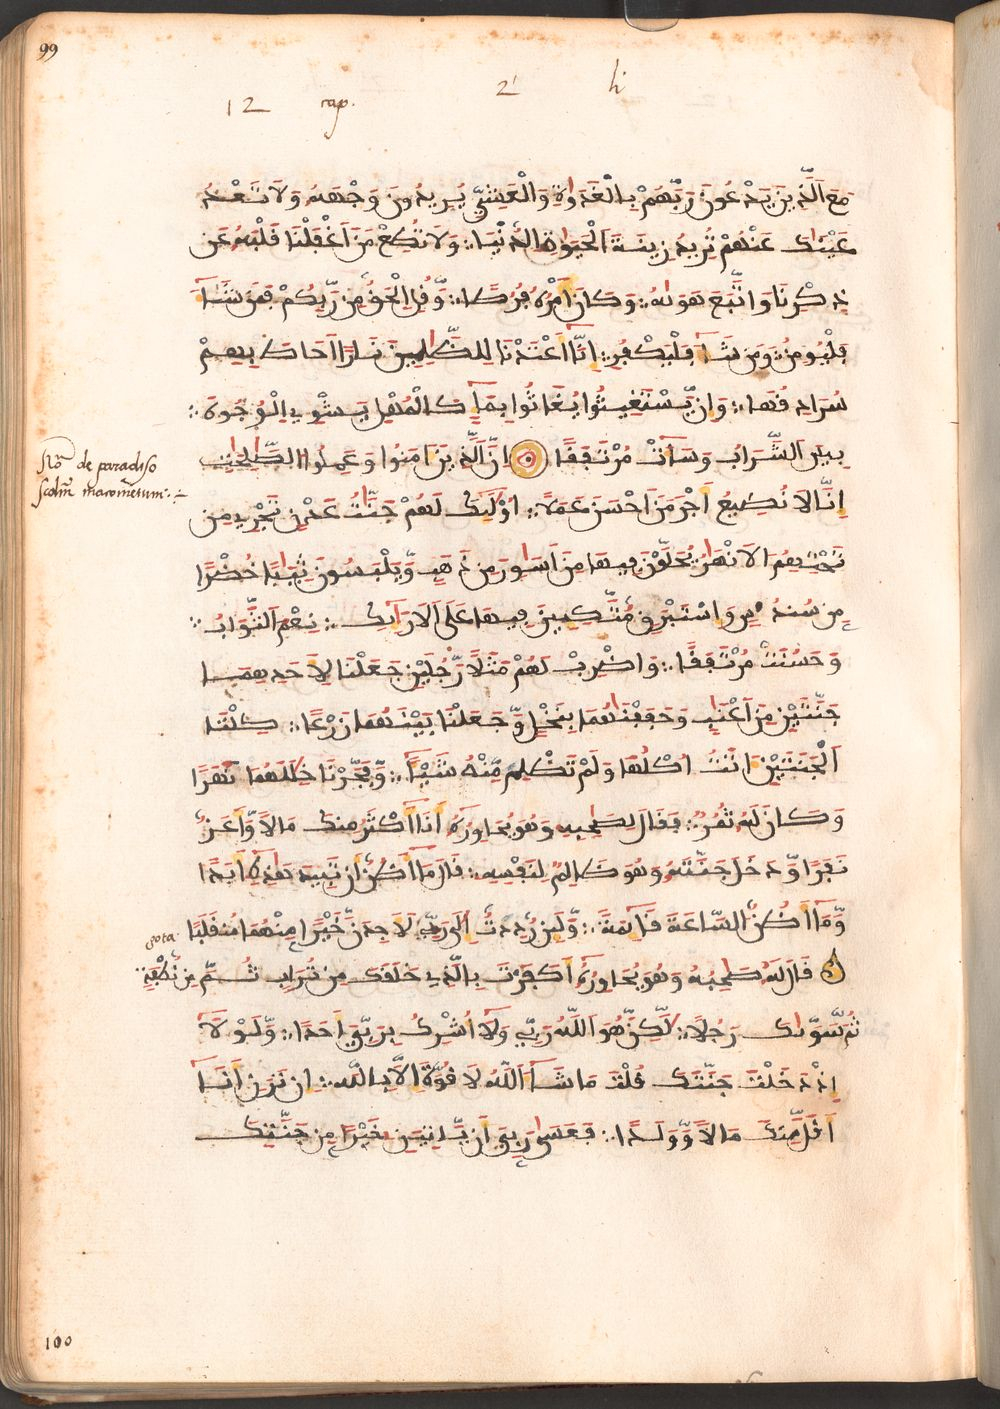 99
12 cap. 2 li
مَعَ اَلَّذِينَ يَدْعُونَ رَبَّهُمْ بِالْغَدَوٰةِ وَالْعَشِيِّ يُرِيدُونَ وَجْهَهُ وَلَا تَعْدُ
عَيْنَٰكَ عَنْهُمْ تُرِيدُ زِينَةَ اَلْحَيَوٰةِ الدُّنْيَا وَلَا تُطِعْ مَنَ اَغْفَلْنَا قَلْبَهُ عَن
ذِكْرِنَا وَاتَّبَعَ هَوٰىهُ وَكَانَ اَمْرُهُ فُرُطًا وَّقُلِ اِلْحَقُّ مِن رَّبِّكُمْ فَمَن شَآ
فَلْيُومِن وَمَن شَآ فَلْيَكْفُرِ اِنَّا أَعْتَدْنَا لِلظَّٰلِمِينَ نَارًا اَحَاطَ بِهِمْ
سُرَادِقُهَا وَإِن يَّسْتَغِيثُوا يُغَاثُوا بِمَآ كَالْمُهْلِ يَشْوِي اِلْوُجُوهَ
بِيسَ اَلشَّرَابُ وَسَآتْ مُرْتَفَقًا اِنَّ اَلَّذِينَ اٰمَنُوا وَعَمِلُوا الصَّٰلِحَٰتِ
Nõ de paradiso
macometum
اِنَّا لَا نُضِيعُ أَجْرَ مَنَ اَحْسَنَ عَمَلًا اُوْلَٰٓئِكَ لَهُمْ جَنَّٰتُ عَدْنٍ تَجْرِي مِن
تَحْتِهِمُ اَلَانْهَٰرُ يُحَلَّوْنَ فِيهَا مِنَ اَسَاوِرَ مِن ذَهَبٍ وَّيَلْبَسُونَ ثِيَابًا خُضْرًا
مِّن سُندُسٍ وَاسْتَبْرَقٍ مُّتَّكِـِٕينَ فِيهَا عَلَى اَلَارَآئِكِ نِعْمَ اَلثَّوَابُ
وَحَسُنَتْ مُرْتَفَقًا وَاضْرِبْ لَهُمْ مَثَلًا رَّجُلَيْنِ جَعَلْنَا لِأَحَدِهِمَا
جَنَّتَيْنِ مِنَ اَعْنَٰبٍ وَحَفَفْنَٰهُمَا بِنَخْلٍ وَّجَعَلْنَا بَيْنَهُمَا زَرْعًا كِلْتَا
اَلْجَنَّتَيْنِ اٰتَتُ اُكْلَهَا وَلَمْ تَظْلِم مِّنْهُ شَيْـًٔا وَّفَجَّرْنَا خِلَٰلَهُمَا نَهَرًا
وَكَانَ لَهُ ثُمُرٌ فَقَالَ لِصَٰحِبِهِ وَهُوَ يُحَاوِرُهُ أَنَآ أَكْثَرُ مِنكَ مَالًا وَّأَعَزُّ
نَفَرًا وَّدَخَلَ جَنَّتَهُ وَهُوَ ظَالِمٌ لِنَفْسِهِ قَالَ مَآ أَظُنُّ أَن تَبِيدَ هَٰذِهِ أَبَدًا
وَّمَآ أَظُنُّ السَّاعَةَ قَآئِمَةً وَّلَئِن رُّدِدتُّ اِلَىٰ رَبِّي لَأَجِدَنَّ خَيْرًا مِّنْهُمَا مُنقَلَبًا
gota
قَالَ لَهُ صَٰحِبُهُ وَهُوَ يُحَاوِرُهُ أَكَفَرْتَ بِالَّذِي خَلَقَكَ مِن تُرَابٍ ثُمَّ مِن نُّطْفَةٍ
ثُمَّ سَوّٰىكَ رَجُلًا لَّٰكِنَّا هُوَ اَللَّهُ رَبِّي وَلَا أُشْرِكُ بِرَبِّيَ أَحَدًا وَّلَوْلَا
اِذْ دَخَلْتَ جَنَّتَكَ قُلْتَ مَا شَآ اَللَّهُ لَا قُوَّةَ اِلَّا بِاللَّهِ اِن تَرَنِ أَنَا
أَقَلَّ مِنكَ مَالًا وَّوَلَدًا فَعَسَىٰ رَبِّيَ أَن يُّوتِيَنِ خَيْرًا مِّن جَنَّتِكَ
100